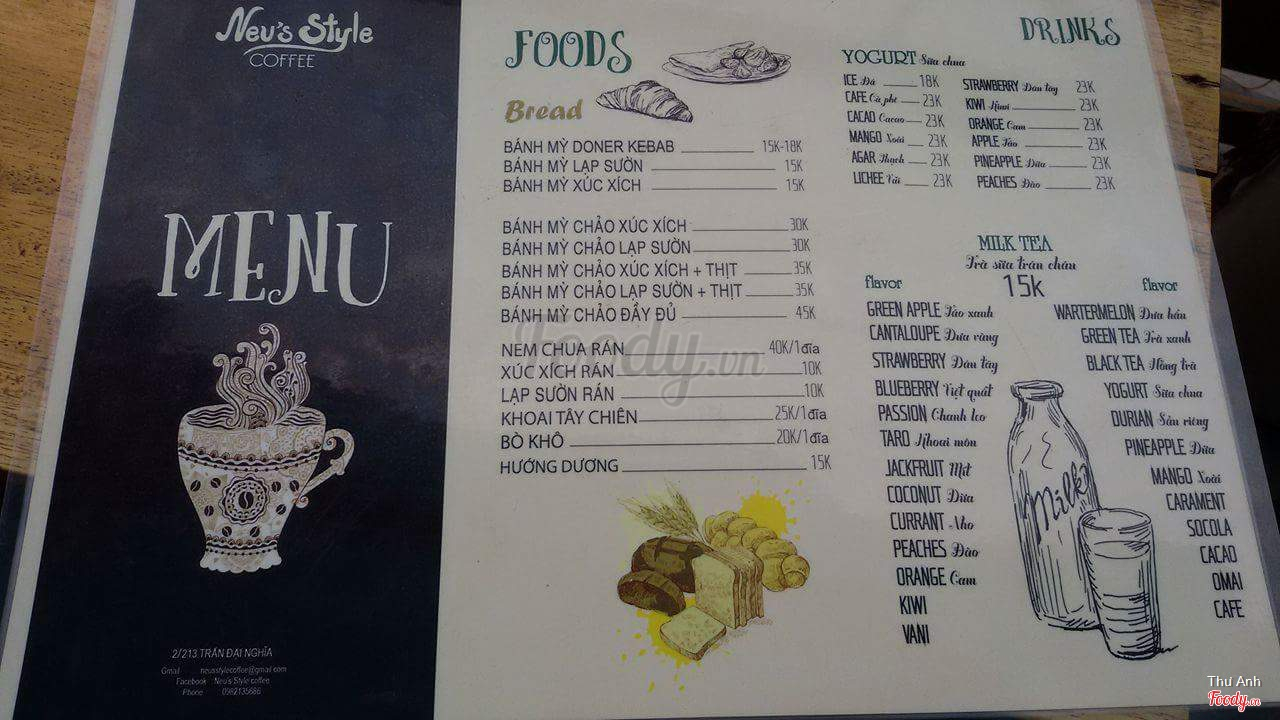 Neu's Style
COFFEE
MENU
2/213 TRẦN ĐẠI NGHĨA
Gmail neusstylecoffee@gmail.com
Facebook Neu's Style coffee
Phone 0982135686
FOODS
Bread
BÁNH MỲ DONER KEBAB 15K-18K
BÁNH MỲ LẠP SƯỜN 15K
BÁNH MỲ XÚC XÍCH 15K
BÁNH MỲ CHẢO XÚC XÍCH 30K
BÁNH MỲ CHẢO LẠP SƯỜN 30K
BÁNH MỲ CHẢO XÚC XÍCH + THỊT 35K
BÁNH MỲ CHẢO LẠP SƯỜN + THỊT 35K
BÁNH MỲ CHẢO ĐẦY ĐỦ 45K
NEM CHUA RÁN 40K/1đĩa
XÚC XÍCH RÁN 10K
LẠP SƯỜN RÁN 10K
KHOAI TÂY CHIÊN 25K/1đĩa
BÒ KHÔ 20K/1đĩa
HƯỚNG DƯƠNG 15K
Foody.vn
DRINKS
YOGURT Sữa chua
ICE Đá 18K
CAFE Cà phê 23K
CACAO Cacao 23K
MANGO Xoài 23K
AGAR Thạch 23K
LICHEE Vải 23K
STRAWBERRY Dâu tây 23K
KIWI Kiwi 23K
ORANGE Cam 23K
APPLE Táo 23K
PINEAPPLE Dứa 23K
PEACHES Đào 23K
MILK TEA
Trà sữa trân châu
15k
flavor
GREEN APPLE Táo xanh
CANTALOUPE Dưa vàng
STRAWBERRY Dâu tây
BLUEBERRY Việt quất
PASSION Chanh leo
TARO Khoai môn
JACKFRUIT Mít
COCONUT Dừa
CURRANT Nho
PEACHES Đào
ORANGE Cam
KIWI
VANI
flavor
WARTERMELON Dưa hấu
GREEN TEA Trà xanh
BLACK TEA Hồng trà
YOGURT Sữa chua
DURIAN Sầu riêng
PINEAPPLE Dứa
MANGO Xoài
CARAMENT
SOCOLA
CACAO
OMAI
CAFE
Milk
Thu Anh
Foody.vn